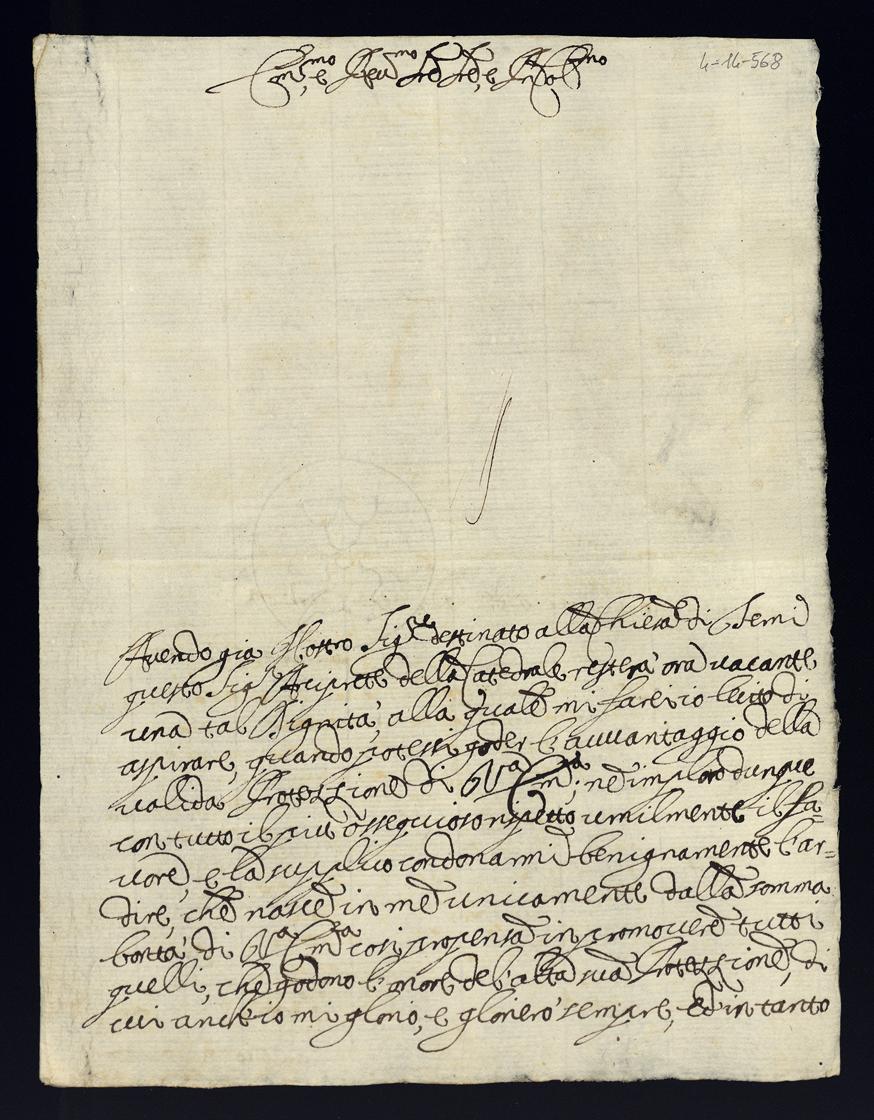 Em.mo, e Rev.mo Sre Sre, e Pron Col.mo
4=14-568
Avendo gia Nostro Sig.re destinato alla Chiesa di Terni
questo Sig.r Arciprete della Catedrale resterà ora vacante
una tal Dignità, alla quale mi farei io lecito di
aspirare, quando potessi goder l'avvantaggio della
valida Protessione di V.a Em.a; ne imploro dunque
con tutto il più ossequioso rispetto umilmente il fa-
vore, e la supplico condonarmi benignamente l'ar=
dire, che nasce in me unicamente dalla somma
bontà di V.a Em.a cosi propensa in promovere tutti
quelli, che godono l'onore del'alta sua Protessione, di
cui anch'io mi glorio, e glorierò sempre, ed in tanto